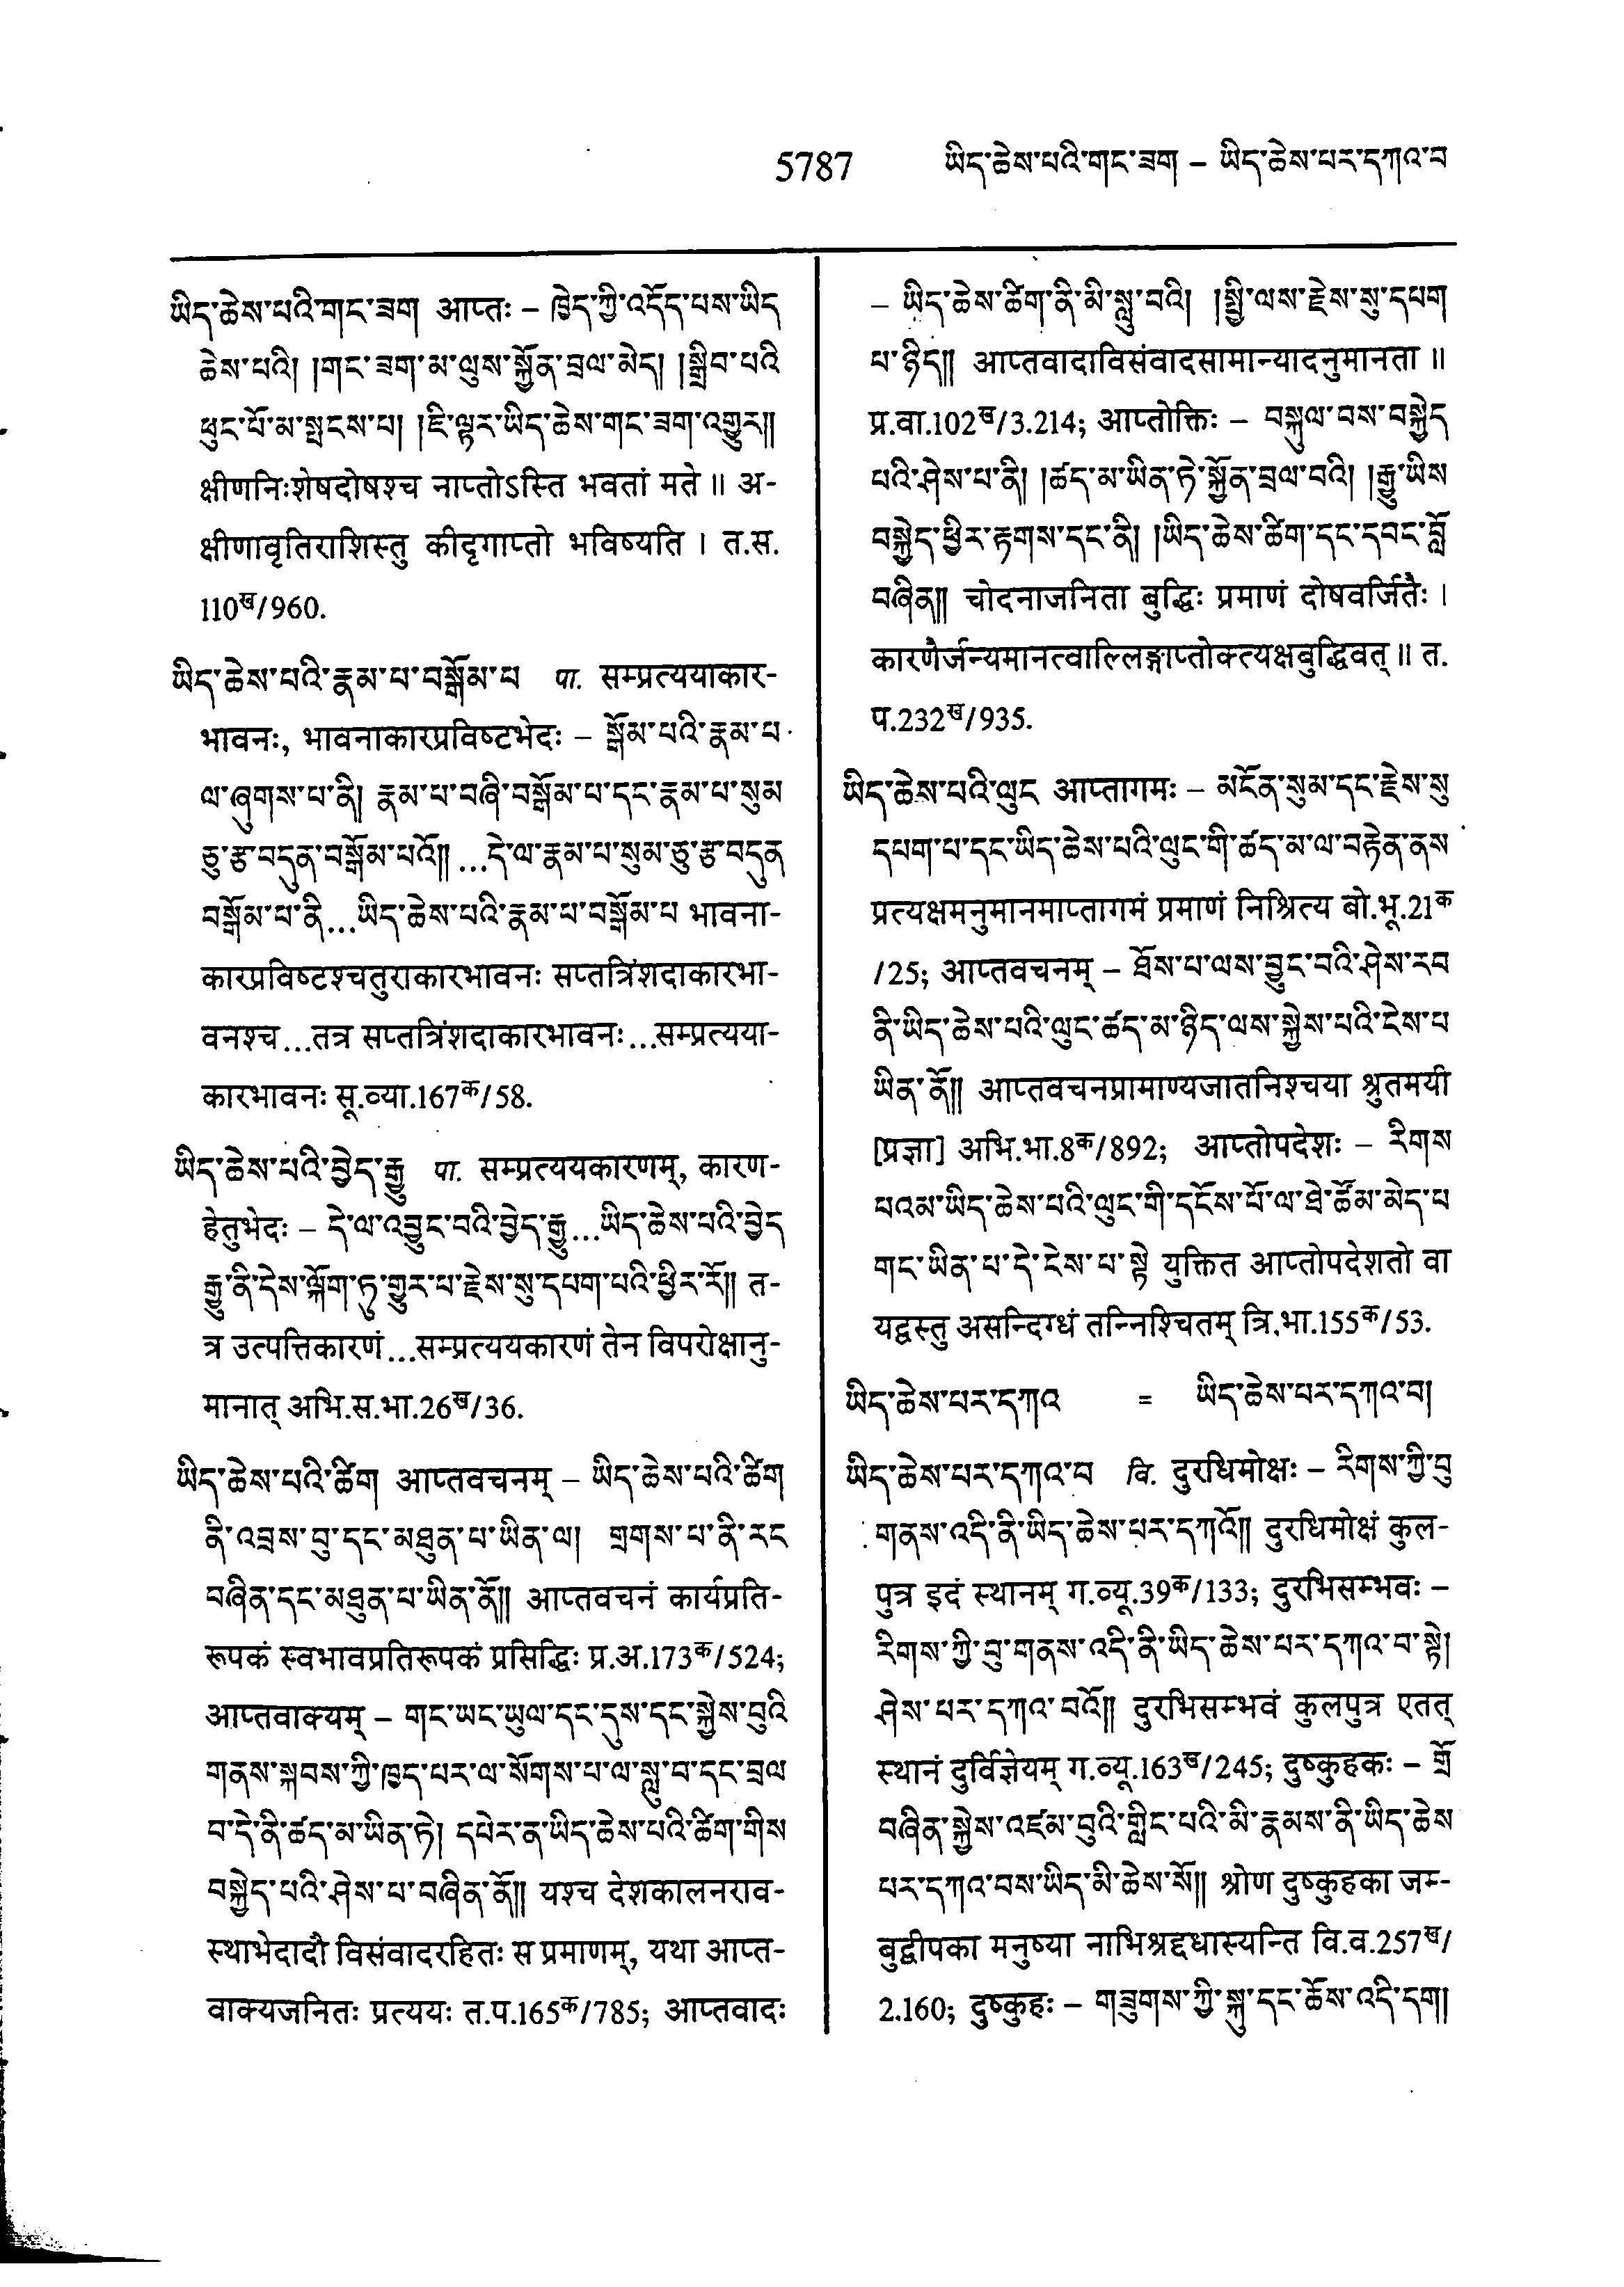 5787
ཡིད་ཆེས་པའི་གང་ཟག – ཡིད་ཆེས་པར་དཀའ་བ
ཡིད་ཆེས་པའི་གང་ཟག आप्तः – ཁྱེད་ཀྱི་འདོད་པས་ཡིད
ཆེས་པའི། །གང་ཟག་མ་ལུས་སྐྱོན་བྲལ་མེད། །སྒྲིབ་པའི
ཕུང་པོ་མ་སྤངས་པ། །ཇི་ལྟར་ཡིད་ཆེས་གང་ཟག་འགྱུར༎
क्षीणनिःशेषदोषश्च नाप्तोऽस्ति भवतां मते ॥ अ-
क्षीणावृतिराशिस्तु कीदृगाप्तो भविष्यति । त.स.
110ख/960.
ཡིད་ཆེས་པའི་རྣམ་པ་བསྒོམ་པ पा. सम्प्रत्ययाकार-
भावनः, भावनाकारप्रविष्टभेदः – སྒོམ་པའི་རྣམ་པ
ལ་ཞུགས་པ་ནི། རྣམ་པ་བཞི་བསྒོམ་པ་དང་རྣམ་པ་སུམ
ཅུ་རྩ་བདུན་བསྒོམ་པའོ༎ ...དེ་ལ་རྣམ་པ་སུམ་ཅུ་རྩ་བདུན
བསྒོམ་པ་ནི...ཡིད་ཆེས་པའི་རྣམ་པ་བསྒོམ་པ भावना-
कारप्रविष्टश्चतुराकारभावनः सप्तत्रिंशदाकारभा-
वनश्च...तत्र सप्तत्रिंशदाकारभावनः...सम्प्रत्यया-
कारभावनः सू.व्या.167क/58.
ཡིད་ཆེས་པའི་བྱེད་རྒྱུ पा. सम्प्रत्ययकारणम्, कारण-
हेतुभेदः – དེ་ལ་འབྱུང་བའི་བྱེད་རྒྱུ...ཡིད་ཆེས་པའི་བྱེད
རྒྱུ་ནི་དེས་ལྐོག་ཏུ་གྱུར་པ་རྗེས་སུ་དཔག་པའི་ཕྱིར་རོ༎ त-
त्र उत्पत्तिकारणं...सम्प्रत्ययकारणं तेन विपरोक्षानु-
मानात् अभि.स.भा.26ख/36.
ཡིད་ཆེས་པའི་ཚིག आप्तवचनम् – ཡིད་ཆེས་པའི་ཚིག
ནི་འབྲས་བུ་དང་མཐུན་པ་ཡིན་ལ། གྲགས་པ་ནི་རང
བཞིན་དང་མཐུན་པ་ཡིན་ནོ༎ आप्तवचनं कार्यप्रति-
रूपकं स्वभावप्रतिरूपकं प्रसिद्धिः प्र.अ.173क/524;
आप्तवाक्यम् – གང་ཡང་ཡུལ་དང་དུས་དང་སྐྱེས་བུའི
གནས་སྐབས་ཀྱི་ཁྱད་པར་ལ་སོགས་པ་ལ་སླུ་བ་དང་བྲལ
བ་དེ་ནི་ཚད་མ་ཡིན་ཏེ། དཔེར་ན་ཡིད་ཆེས་པའི་ཚིག་གིས
བསྐྱེད་པའི་ཤེས་པ་བཞིན་ནོ༎ यश्च देशकालनराव-
स्थाभेदादौ विसंवादरहितः स प्रमाणम्, यथा आप्त-
वाक्यजनितः प्रत्ययः त.प.165क/785; आप्तवादः
– ཡིད་ཆེས་ཚིག་ནི་མི་སླུ་བའི། །སྤྱི་ལས་རྗེས་སུ་དཔག
པ་ཉིད༎ आप्तवादाविसंवादसामान्यादनुमानता ॥
प्र.वा.102ख/3.214; आप्तोक्तिः – བསྐུལ་བས་བསྐྱེད
པའི་ཤེས་པ་ནི། །ཚད་མ་ཡིན་ཏེ་སྐྱོན་བྲལ་བའི། །རྒྱུ་ཡིས
བསྐྱེད་ཕྱིར་རྟགས་དང་ནི། །ཡིད་ཆེས་ཚིག་དང་དབང་བློ
བཞིན༎ चोदनाजनिता बुद्धिः प्रमाणं दोषवर्जितैः ।
कारणैर्जन्यमानत्वाल्लिङ्गाप्तोक्त्यक्षबुद्धिवत् ॥ त.
प.232ख/935.
ཡིད་ཆེས་པའི་ལུང आप्तागमः – མངོན་སུམ་དང་རྗེས་སུ
དཔག་པ་དང་ཡིད་ཆེས་པའི་ལུང་གི་ཚད་མ་ལ་བརྟེན་ནས
प्रत्यक्षमनुमानमाप्तागमं प्रमाणं निश्रित्य बो.भू.21क
/25; आप्तवचनम् – ཐོས་པ་ལས་བྱུང་བའི་ཤེས་རབ
ནི་ཡིད་ཆེས་པའི་ལུང་ཚད་མ་ཉིད་ལས་སྐྱེས་པའི་ངེས་པ
ཡིན་ནོ༎ आप्तवचनप्रामाण्यजातनिश्चया श्रुतमयी
[प्रज्ञा] अभि.भा.8क/892; आप्तोपदेशः – རིགས
པའམ་ཡིད་ཆེས་པའི་ལུང་གི་དངོས་པོ་ལ་ཐེ་ཚོམ་མེད་པ
གང་ཡིན་པ་དེ་ངེས་པ་སྟེ युक्तित आप्तोपदेशतो वा
यद्वस्तु असन्दिग्धं तन्निश्चितम् त्रि.भा.155क/53.
ཡིད་ཆེས་པར་དཀའ = ཡིད་ཆེས་པར་དཀའ་བ།
ཡིད་ཆེས་པར་དཀའ་བ वि. दुरधिमोक्षः – རིགས་ཀྱི་བུ
གནས་འདི་ནི་ཡིད་ཆེས་པར་དཀའོ༎ दुरधिमोक्षं कुल-
पुत्र इदं स्थानम् ग.व्यू.39क/133; दुरभिसम्भवः –
རིགས་ཀྱི་བུ་གནས་འདི་ནི་ཡིད་ཆེས་པར་དཀའ་བ་སྟེ།
ཤེས་པར་དཀའ་བའོ༎ दुरभिसम्भवं कुलपुत्र एतत्
स्थानं दुर्विज्ञेयम् ग.व्यू.163ख/245; दुष्कुहकः – གྲོ
བཞིན་སྐྱེས་འཛམ་བུའི་གླིང་པའི་མི་རྣམས་ནི་ཡིད་ཆེས
པར་དཀའ་བས་ཡིད་མི་ཆེས་སོ༎ श्रोण दुष्कुहका जम्-
बुद्वीपका मनुष्या नाभिश्रद्दधास्यन्ति वि.व.257ख/
2.160; दुष्कुहः – གཟུགས་ཀྱི་སྐུ་དང་ཆོས་འདི་དག།